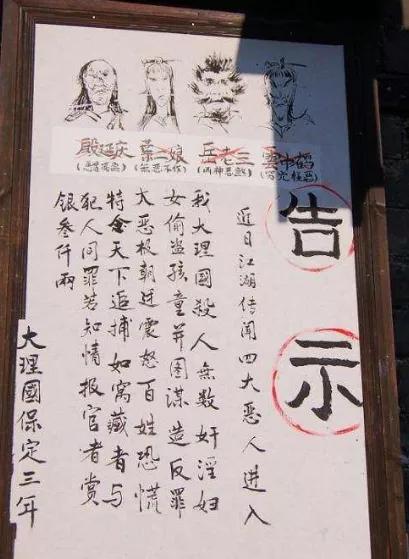 殿延庆 葉二娘 岳老三 雲中鹤
(恶贯满盈) (無恶不作) (凶神恶煞) (穷凶极恶)
告示
近日江湖传闻四大恶人進入
我大理國殺人無数奸淫妇
女偷盗孩童并图谋造反罪
大恶极朝廷震怒百姓恐慌
特令天下追捕如窝藏者与
犯人同罪若知情报官者赏
银叁仟兩
大理國保定三年